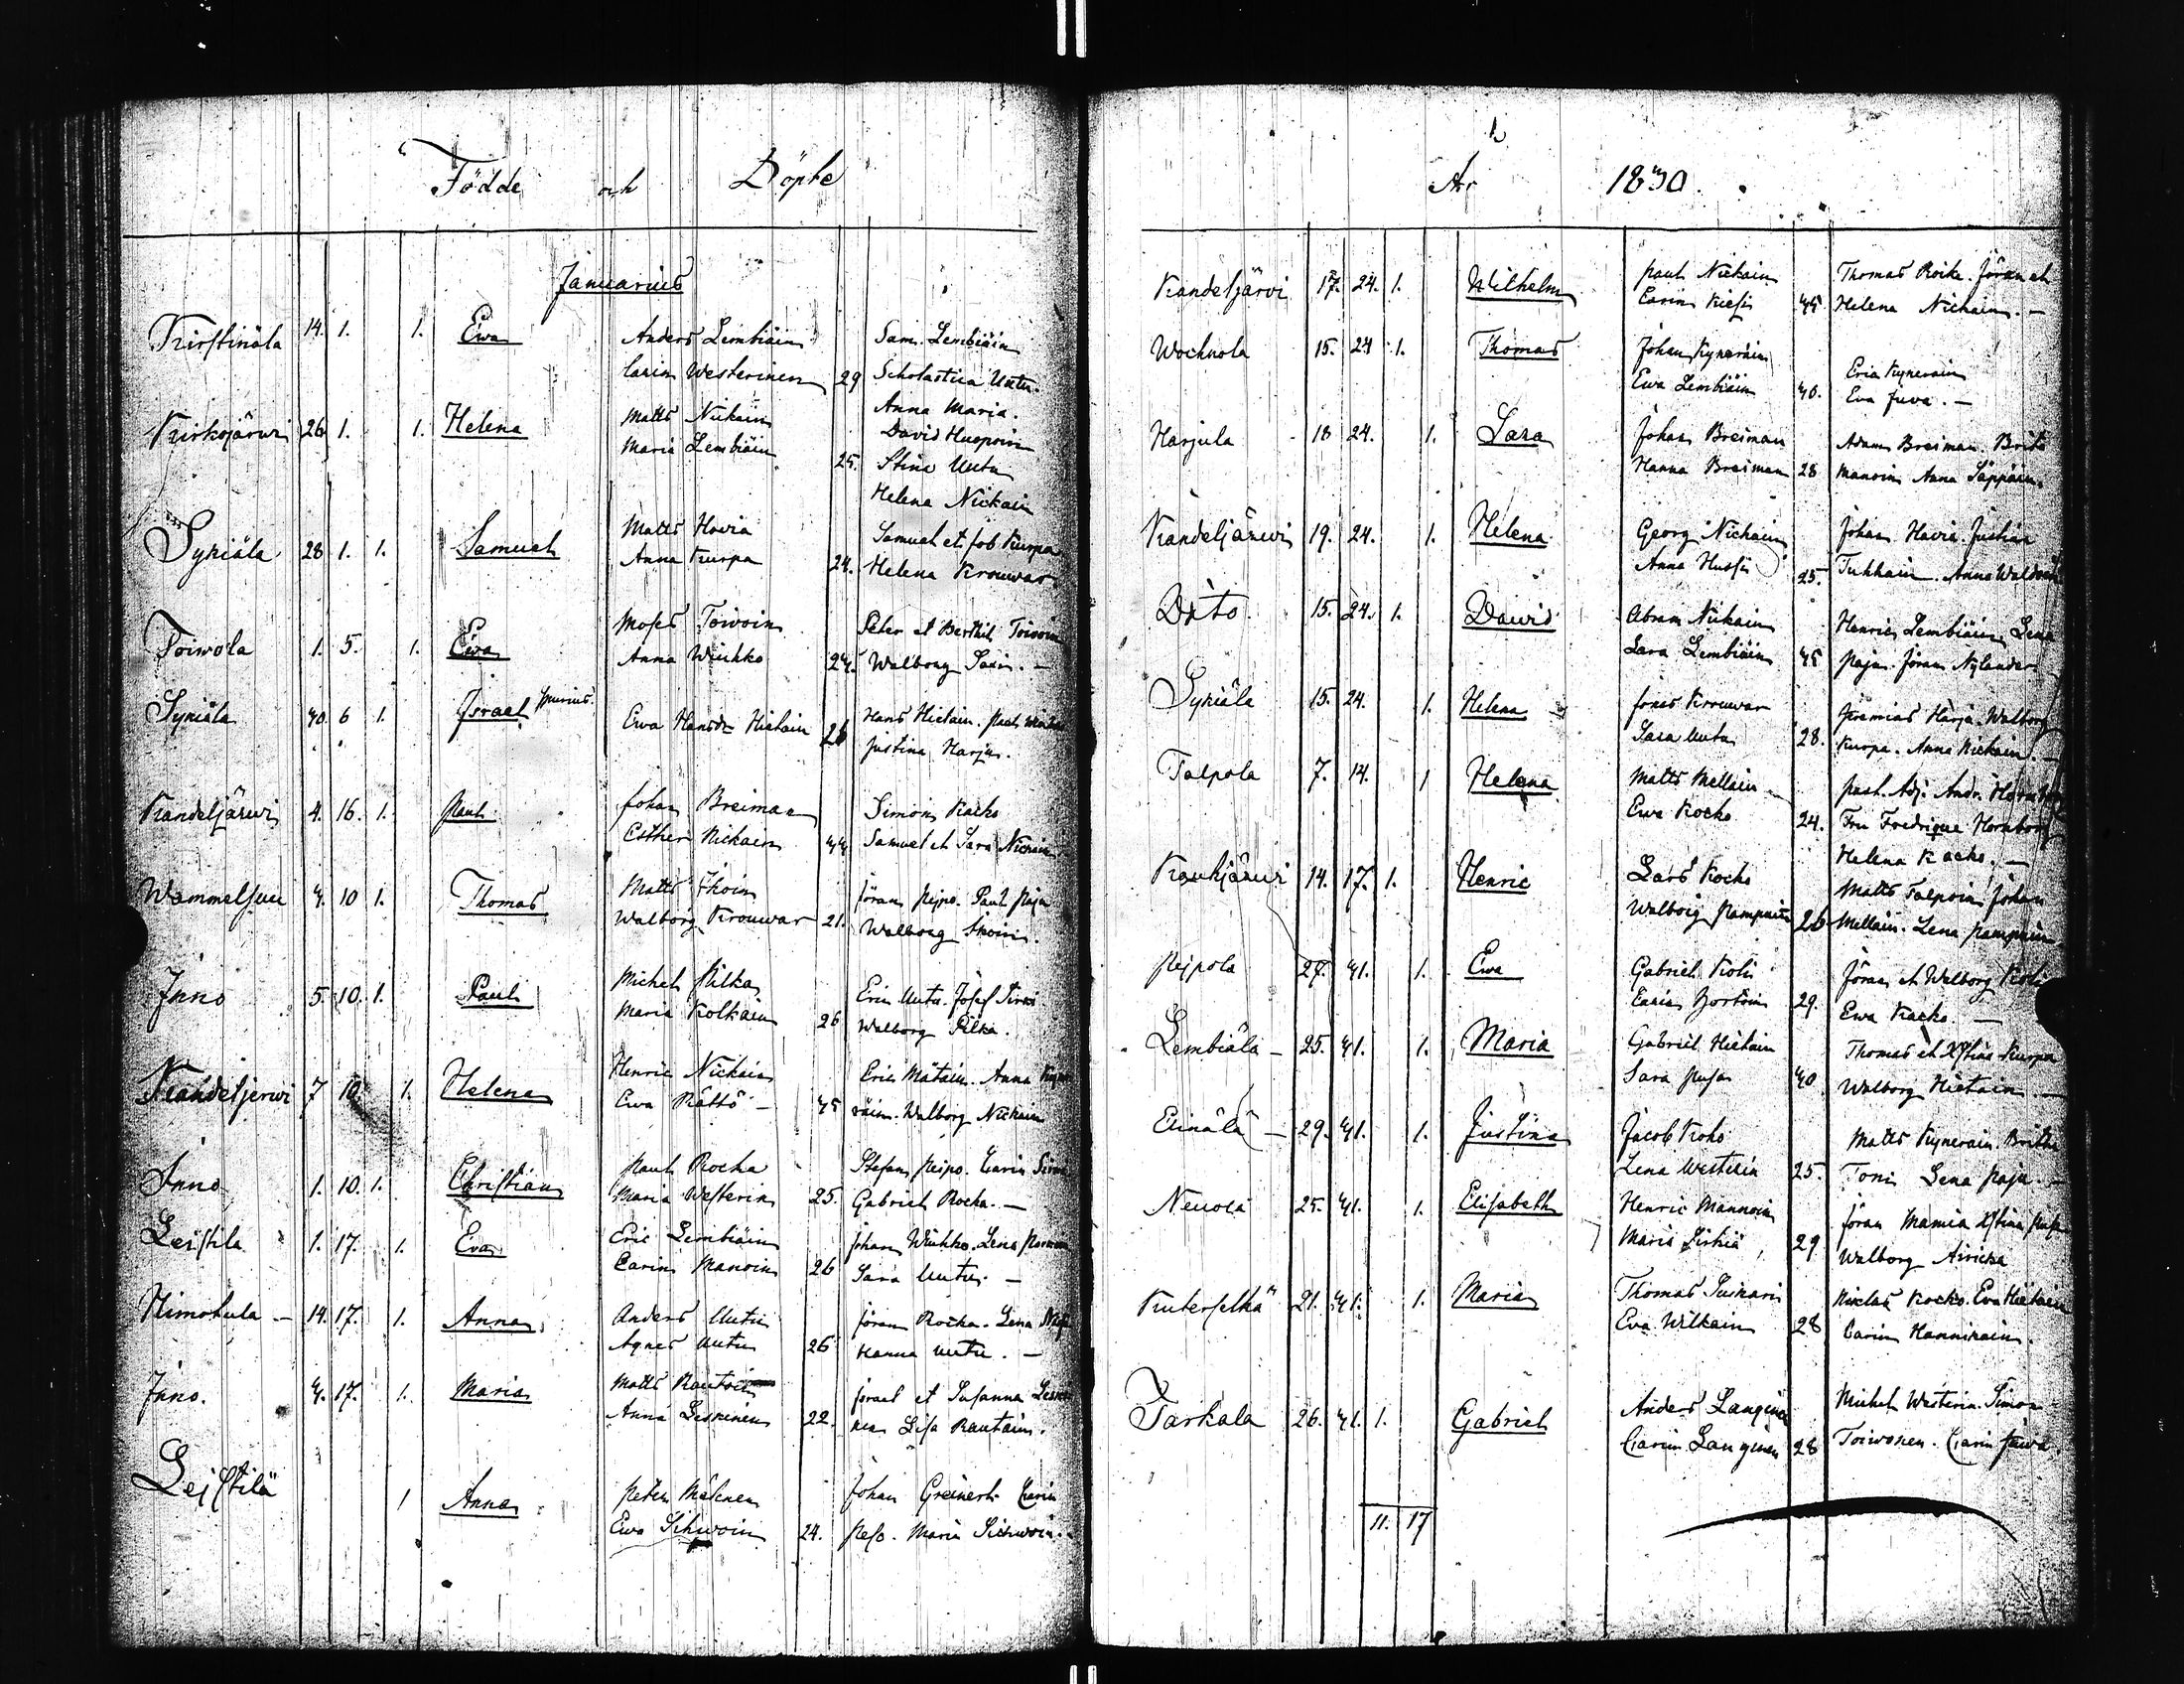 Födde och Döpte
Januarius
Kirstinäla 14. 1. 1. Ewa Anders Lembiäin Sam. Lembiäin
Carin Westerinen 29 Scholastica Uutu.
Anna Maria.
Kirkojärwi 26 1. 1. Helena Matts Nickain David Huopoin
Maria Lembiäin 25. Stina Uutu
Helena Nickain
Sykiälä 28 1. 1. Samuel Matts Havia Samuel et Job Kurpa
Anna Kurpa 24. Helena Krouwar
Toiwola 1. 5. 1. Ewa Moses Toivoin Peter et Berthil Toivoin
Anna Wiukko 24. Walborg –
Sykiälä 30. 6 1. Israel spurius. Ewa Hansdr Hietain 26 Hans Hietain. Paul
Justina Harju.
Kandeljärwi 4. 16. 1. Paul Johan Breiman Simon Kacko
Esther Nickain 44 Samuel et Sara Nickain
Wammelsuu 4. 10 1. Thomas Matts Ikoin Jöran Peipo. Paul Paja
Walborg Krouwar 21. Walborg Ikoin.
Inno 5. 10. 1. Paul Michel Pilka Eric Uutu. Josef
Maria Kolkain 26 Walborg Pilka.
Kandeljerwi 7 10 1. Helena Henric Nickain Eric Mätäin. Anna Kyne
Ewa Rättö – 45 räin. Walborg Nickain
Inno 1. 10. 1. Christian Paul Rocka Stefan Peipo. Carin
Maria Westerin 25. Gabriel Rocka. –
Leistila 1. 17. 1. Eva Eric Lembiäin Johan Wiukko. Lena
Carin Manoin 26 Sara Uutu. –
Himokula – 14. 17. 1. Anna Anders Uutu Jöran Rocka. Lena
Agnes Uutu 26 Hanna Uutu. –
Inno. 4. 17. 1. Maria Matts Rautain Israel et Susanna Leski
Anna Leskinen 22. nen Lisa Rautain.
Leistilä 1 Anna Peter Mälenen Johan Greinert Carin
Ewa Sihwoin 24. Peso. Maria Sichwoin.
År 1830.
Kandeljärvi 17. 24. 1. Wilhelm Paul Nickain Thomas Roika. Jöran et
Carin Kiesi 45 Helena Nickain. –
Wochnola 15. 24 1. Thomas Johan Kyneräin Eric Kyneräin
Ewa Lembiäin 40. Eva Juva. –
Harjula 18 24. 1. Sara Johan Breiman Adam Breiman Brita
Hanna Breiman 28 Manoin Anna Säppäin.
Kandeljärwi 19. 24. 1. Helena Georg Nickain Johan Havia. Justina
Anna Hussi 25. Tukkain. Anna
Dito 15. 24. 1. David Abram Nickain Henric Lembiäin Lena
Sara Lembiäin 45 Paja. Jöran Nylander
Sykiälä 15. 24. 1. Helena Jonas Krouwar Jeremias Harju. Walborg
Sara Uutu 28. Kurpa. Anna Nickain. –
Talpola 7. 14. 1 Helena Matts Mellain Past. Adj. Andr. Hornborg
Ewa Kocko 24. Fru Fredrique Hornborg
Helena Kacko. –
Kaukjärwi 14. 17. 1. Henric Lars Kocko Matts Talpoin Johan
Walborg 26 Mellain. Lena
Peipola 27. 31. 1. Ewa Gabriel Koli Jöran et Walborg Koli
Carin 29. Ewa Kacko. –
Lembiälä – 25. 31. 1. Maria Gabriel Hietain Thomas et Xstina Kurpa
Sara Pusa 40 Walborg Hietain. –
Einälä – 29. 31. 1. Justina Jacob Koko Matts Kyneräin Britha
Lena Westerin 25. Toni Lena Paja. –
Neuola 25. 31. 1. Elisabeth Henric Mannoin Jöran Mamia Xstina
Maria 29 Walborg Airicka
Kuterselkä 21. 31. 1. Maria Thomas Niklas Kocko. Eva Hietain
Eva Wilkain 28 Carin Hannikain.
Tarkala 26. 31. 1. Gabriel Anders Langinen Michel Westerin. Simon
Carin Langinen 28 Toiwonen. Carin Juwa.
11. 17